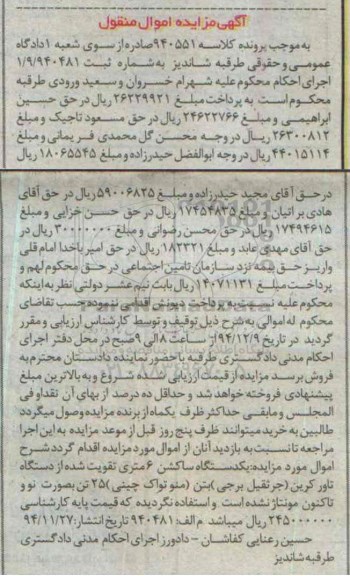 آگهی مزایده اموال منقول
به موجب پرونده کلاسه ۹۴۰۵۵۱صادره از سوی شعبه ۱دادگاه
عمومی و حقوقی طرقبه شاندیز به شماره ثبت ۱/۹/۹۴۰۴۸۱
اجرای احکام محکوم علیه شهرام خروان و سعید ورودی طرقبه
محکوم است به پرداخت مبلغ ۲۶۲۳۹۹۲۱ ریال در حق حسین
ابراهیمی و مبلغ ۲۴۶۲۲۷۶۶ ریال در حق مسعود تاجیک و مبلغ
۲۶۳۰۰۸۱۲ ریال در وجه محسن گل محمدی فریمانی و مبلغ
۴۴۰۱۵۱۱۴ ریال در وجه ابوالفضل حیدرزاده و مبلغ ۱۸۰۶۵۵۴۵ ریال
در حق آقای مجید حیدرزاده و مبلغ ۵۹۰۰۶۸۲۵ ریال در حق آقای
هادی براتیان و مبلغ ۱۷۴۵۴۸۳۵ ریال در حق حسن خزایی و مبلغ
۱۷۴۹۴۶۱۵ ریال در حق محسن رضوانی و مبلغ ۳۰۰۰۰۰۰۰ ریال در
حق آقای مهدی عابد و مبلغ ۱۸۲۳۲۱ ریال در حق امیر باخدا امام قلی
واریز حق بیمه نزد سازمان تامین اجتماعی در حق محکوم لهم و
پرداخت مبلغ ۱۴۰۷۱۱۳۱ ریال بابت نیم عشر دولتی نظر به اینکه
محکوم علیه نسبت به پرداخت دیونش اقدامی ننموده حسب تقاضای
محکوم له اموالی به شرح ذیل توقیف و توسط کارشناس ارزیابی و مقرر
گردید در تاریخ ۹۴/۱۲/۹از ساعت ۸الی ۹صبح در محل دفتر اجرای
احکام مدنی دادگستری طرقبه با حضور نماینده دادستان محترم به
فروش برسد مزایده از قیمت ارزیابی شده شروع و به بالاترین مبلغ
پیشنهادی فروخته خواهد شد و حداقل ده درصد از بهای آن نقدا و فی
المجلس و مابقی حداکثر ظرف یکماه از برنده مزایده وصول میگردد
طالبین به خرید میتوانند ظرف پنج روز قبل از موعد مزایده به این اجرا
مراجعه تا نسبت به بازدید آنان از اموال مورد مزایده اقدام گردد شرح
اموال مورد مزایده:یکدستگاه ساکشن ۶متری تقویت شده از دستگاه
تاور کرین (جرثقیل برجی )بتن (منو تواک چینی)۲۵ تن بصورت نو و
تاکنون مونتاژ نشده است و استفاده نگردیده که قیمت پایه کارشناسی
۲۴۵۰۰۰۰۰۰ ریال میباشد م الف: ۹۴۰۴۸۱ تاریخ انتشار:۹۴/۱۱/۲۷
حسین رعنایی کفاشان - دادورز اجرای احکام مدنی دادگستری
طرقبه شاندیز